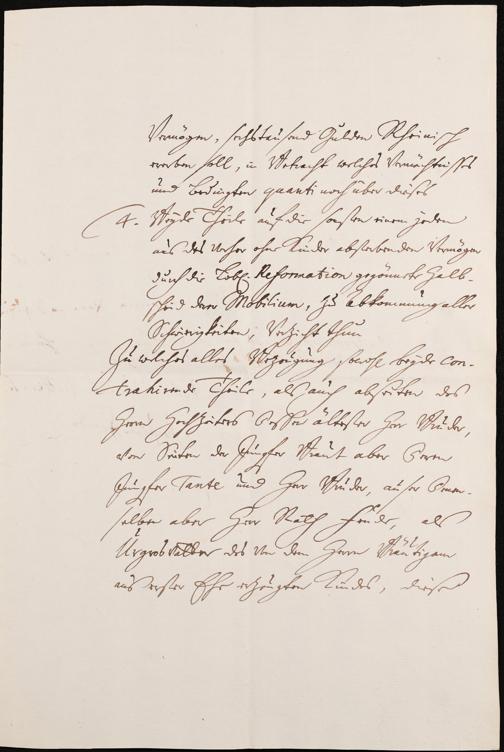 Vermögen, sechstausend Gulden Rheinisch
erben soll, in Betracht welches Vermächtnisses
und bedingten quanti noch über dieses
4. Beyde Theile auf die sonsten einem jeden
aus des ohne Kinder absterbenden Vermögen
durch die Löbl. Reformation gegönnete Halb-
scheid derer Mobilium, zu abkommung aller
Schwierigkeiten, Verzicht thun
Zu welches alles Bezeugung sowohl beyde con-
trahirende Theile, als auch abseiten des
Herrn Hochzeiters dessen ältester Herr Bruder,
von Seiten der Jungfer Braut aber deren
Jungfer Tante und Herr Bruder, außer den-
selben aber Herr Rath , als
Urgrosvatter des von dem Herrn Bräutigam
aus erster Ehe erzeugten Kindes, diese